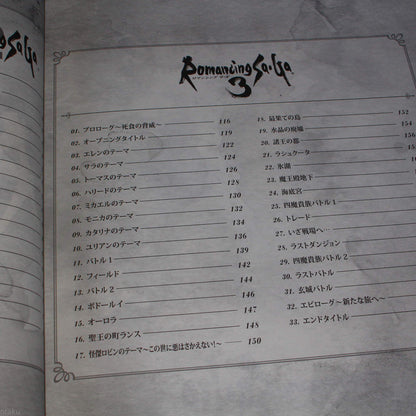 ng Sa·Ga
Romancing Sa·Ga
ロマンシング サ・ガ
3
01. プロローグ～死食の脅威～ 116
02. オープニングタイトル 119
03. エレンのテーマ 122
04. サラのテーマ 124
05. トーマスのテーマ 126
06. ハリードのテーマ 128
07. ミカエルのテーマ 130
08. モニカのテーマ 132
09. カタリナのテーマ 134
10. ユリアンのテーマ 136
11. バトル1 139
12. フィールド 142
13. バトル2 144
14. ポドールイ 146
15. オーロラ 147
16. 聖王の町ランス 148
17. 怪傑ロビンのテーマ～この世に悪はさかえない!～ 150
18. 最果ての島 152
19. 水晶の廃墟 154
20. 諸王の墓 156
21. ラシュクータ
22. 氷湖
23. 魔王殿地下
24. 海底宮
25. 四魔貴族バトル1
26. トレード
27. いざ戦場へ…
28. ラストダンジョン
29. 四魔貴族バトル2
30. ラストバトル
31. 玄城バトル
32. エピローグ～新たな旅へ～
33. エンドタイトル